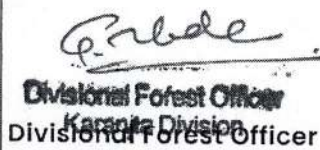 Divisional Forest Officer
Karanjia Division
Divisional Forest Officer